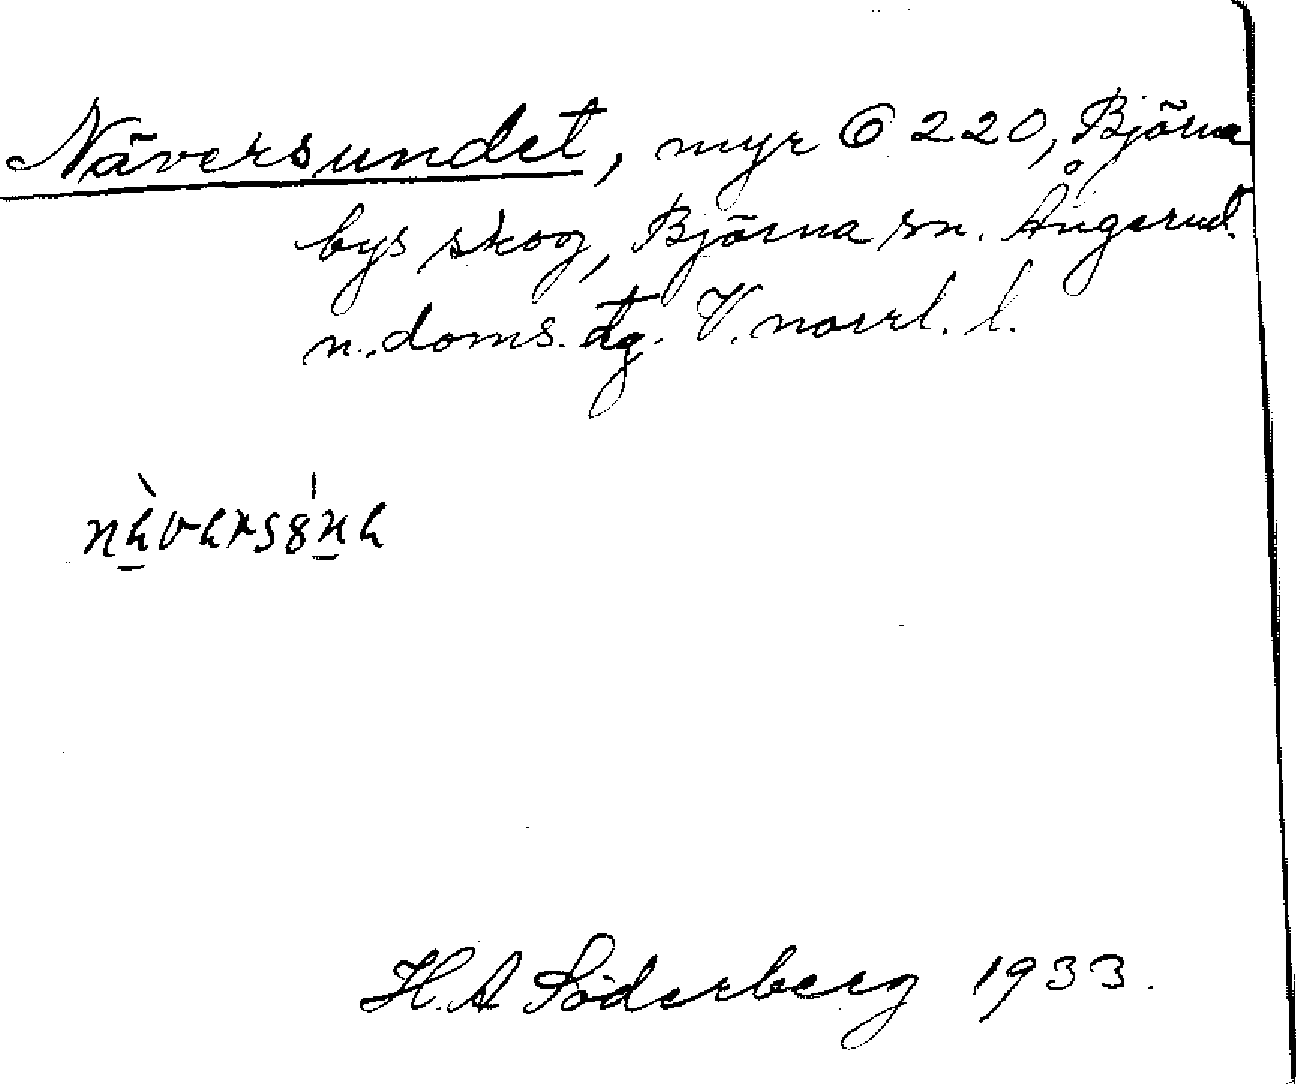 Näversundet, myr 6 220, Björna
bys skog, Björna sn. Ångerml.
n. doms. dg. V. norrl. l.
H. A Söderberg 1933.